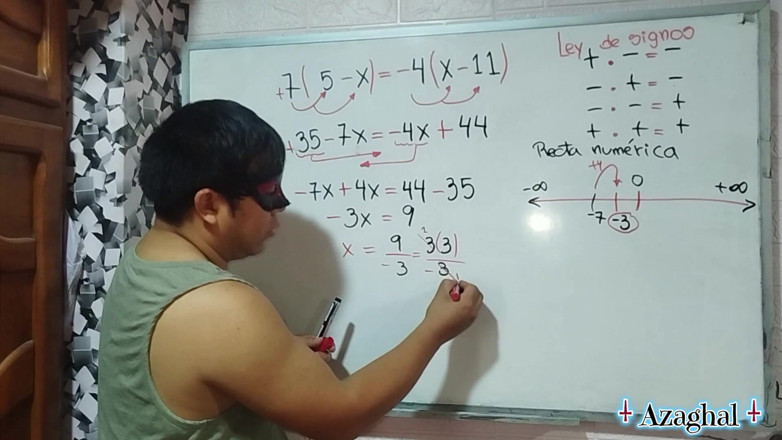 +7(5-x)=-4(x-11)
+35-7x=-4x+44
-7x+4x=44-35
-3x=9
x=9/-3=3(3)/-3
Ley de signos
+.-=-
-.+=-
-.-=+
+.+=+
Recta numérica
+4
-∞ 0 +∞
-7 -3
Azaghal